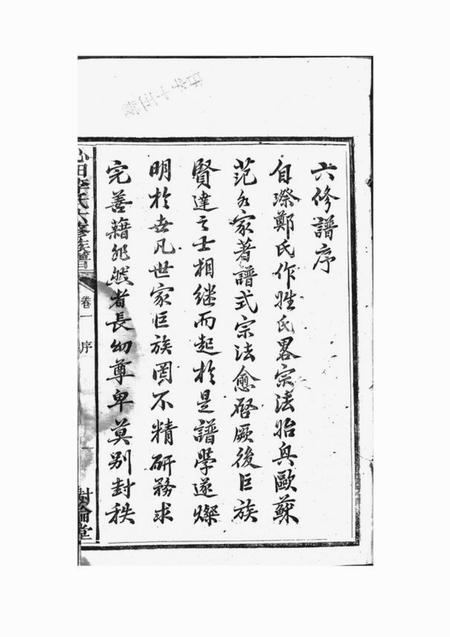 六修譜序
自漈鄭氏作姓氏畧宗法始與歐蘇
范各家著譜式宗法愈啓厥後巨族
賢達之士相継而起於是譜學遂燦
明於世凡世家巨族罔不精研務求
完善藉非然者長幼尊卑莫别封秩
李氏六修族譜
卷一
序